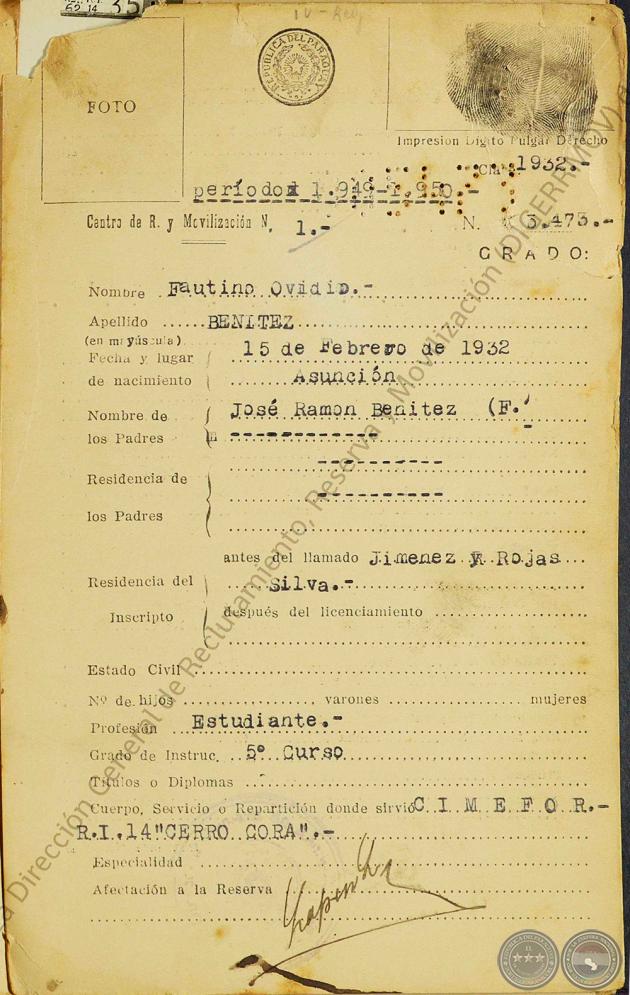 62 14 35
IV - Rey
REPUBLICA DEL PARAGUAY
FOTO
Impresion Digito Pulgar Derecho
1932.-
período 1.949-1.950.-
Centro de R. y Movilización N. 1.-
N. 3.473.-
GRADO:
Nombre Fautino Ovidio.-
Apellido BENITEZ
(en mayúscula)
Fecha y lugar 15 de Febrero de 1932
de nacimiento Asunción
Nombre de José Ramon Benitez (F.
los Padres m ------------
----------
Residencia de
----------
los Padres
antes del llamado Jimenez y Rojas
Residencia del Silva.-
Inscripto después del licenciamiento
Estado Civil
Nº de hijos varones mujeres
Profesión Estudiante.-
Grado de Instruc. 5º Curso
Titulos o Diplomas
Cuerpo, Servicio o Repartición donde sirvió C I M E F O R.-
R.I.14"CERRO CORA".-
Especialidad
Afectación a la Reserva
Dirección General de Reclutamiento, Reserva y Movilización (DIGERRMOV)